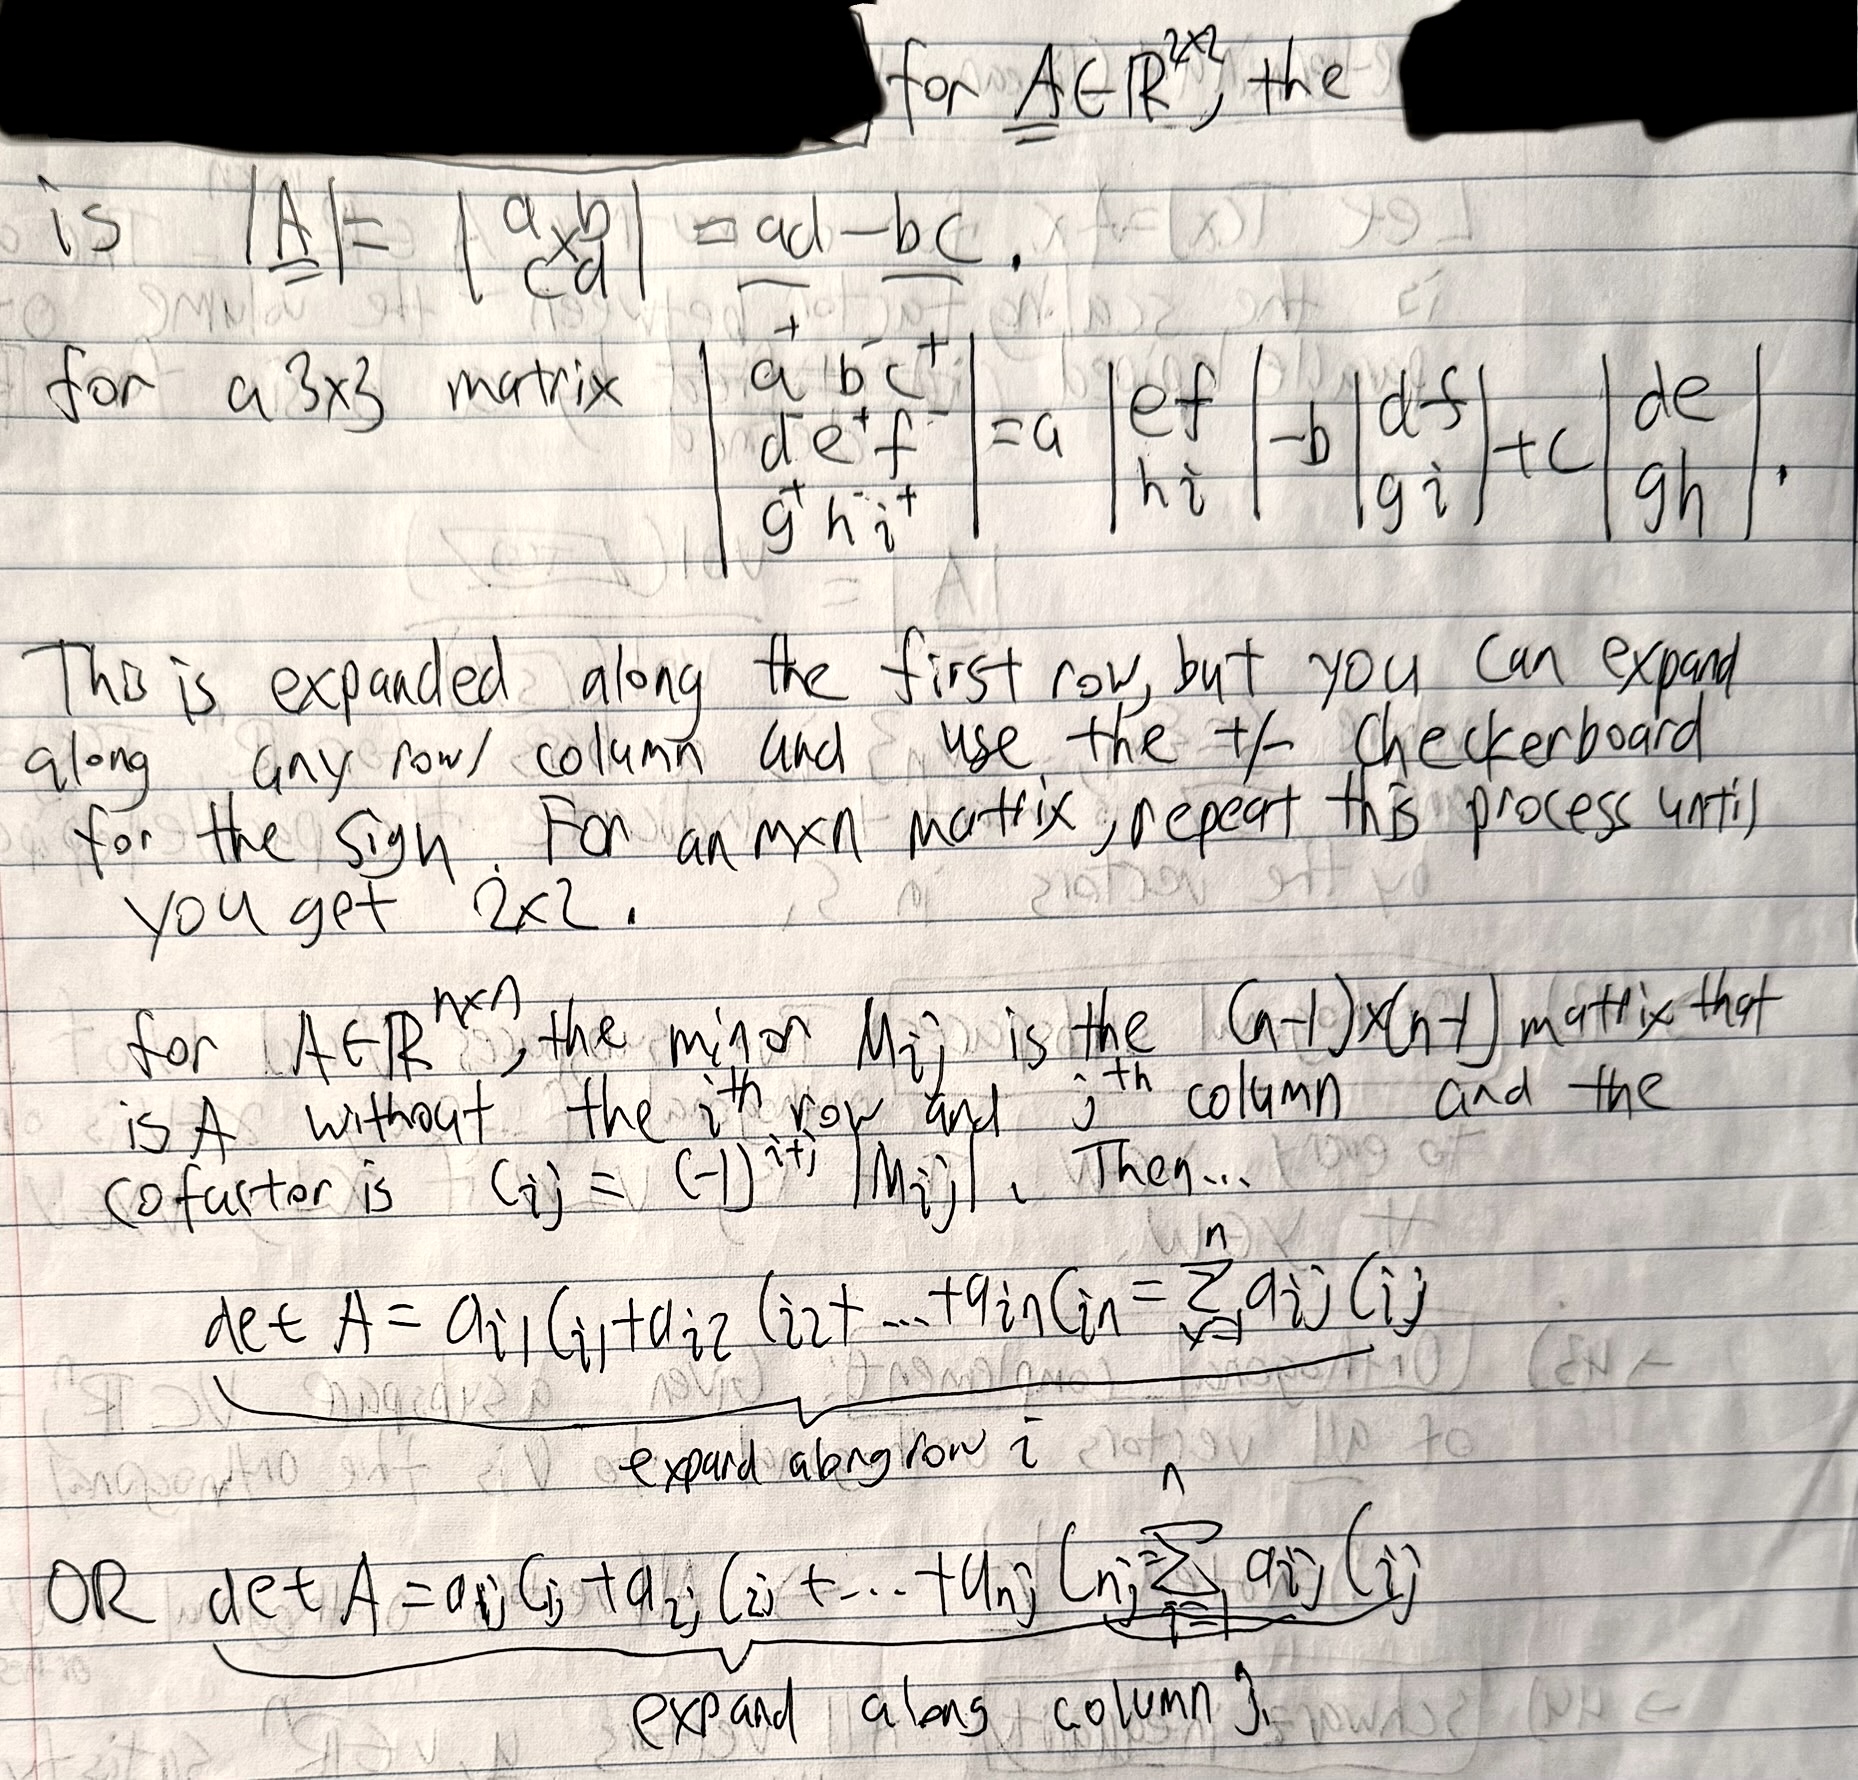 for A∈ℝ²ˣ², the
is |A| = |a b; c d| = ad - bc.
for a 3x3 matrix |a⁺ b⁻ c⁺; d⁻ e⁺ f⁻; g⁺ h⁻ i⁺| = a |e f; h i| - b |d f; g i| + c |d e; g h|.
This is expanded along the first row, but you can expand
along any row/column and use the +/- checkerboard
for the sign. For an nxn matrix, repeat this process until
you get 2x2.
for A∈ℝⁿˣⁿ, the minor Mij is the (n-1)x(n-1) matrix that
is A without the iᵗʰ row and jᵗʰ column and the
cofactor is Cij = (-1)ⁱ⁺ʲ |Mij|. Then...
det A = ai1 Ci1 + ai2 Ci2 + ... + ain Cin = Σⁿ aij Cij
expand along row i
OR det A = a1j C1j + a2j C2j + ... + anj Cnj = Σⁿ i=1 aij Cij
expand along column j.